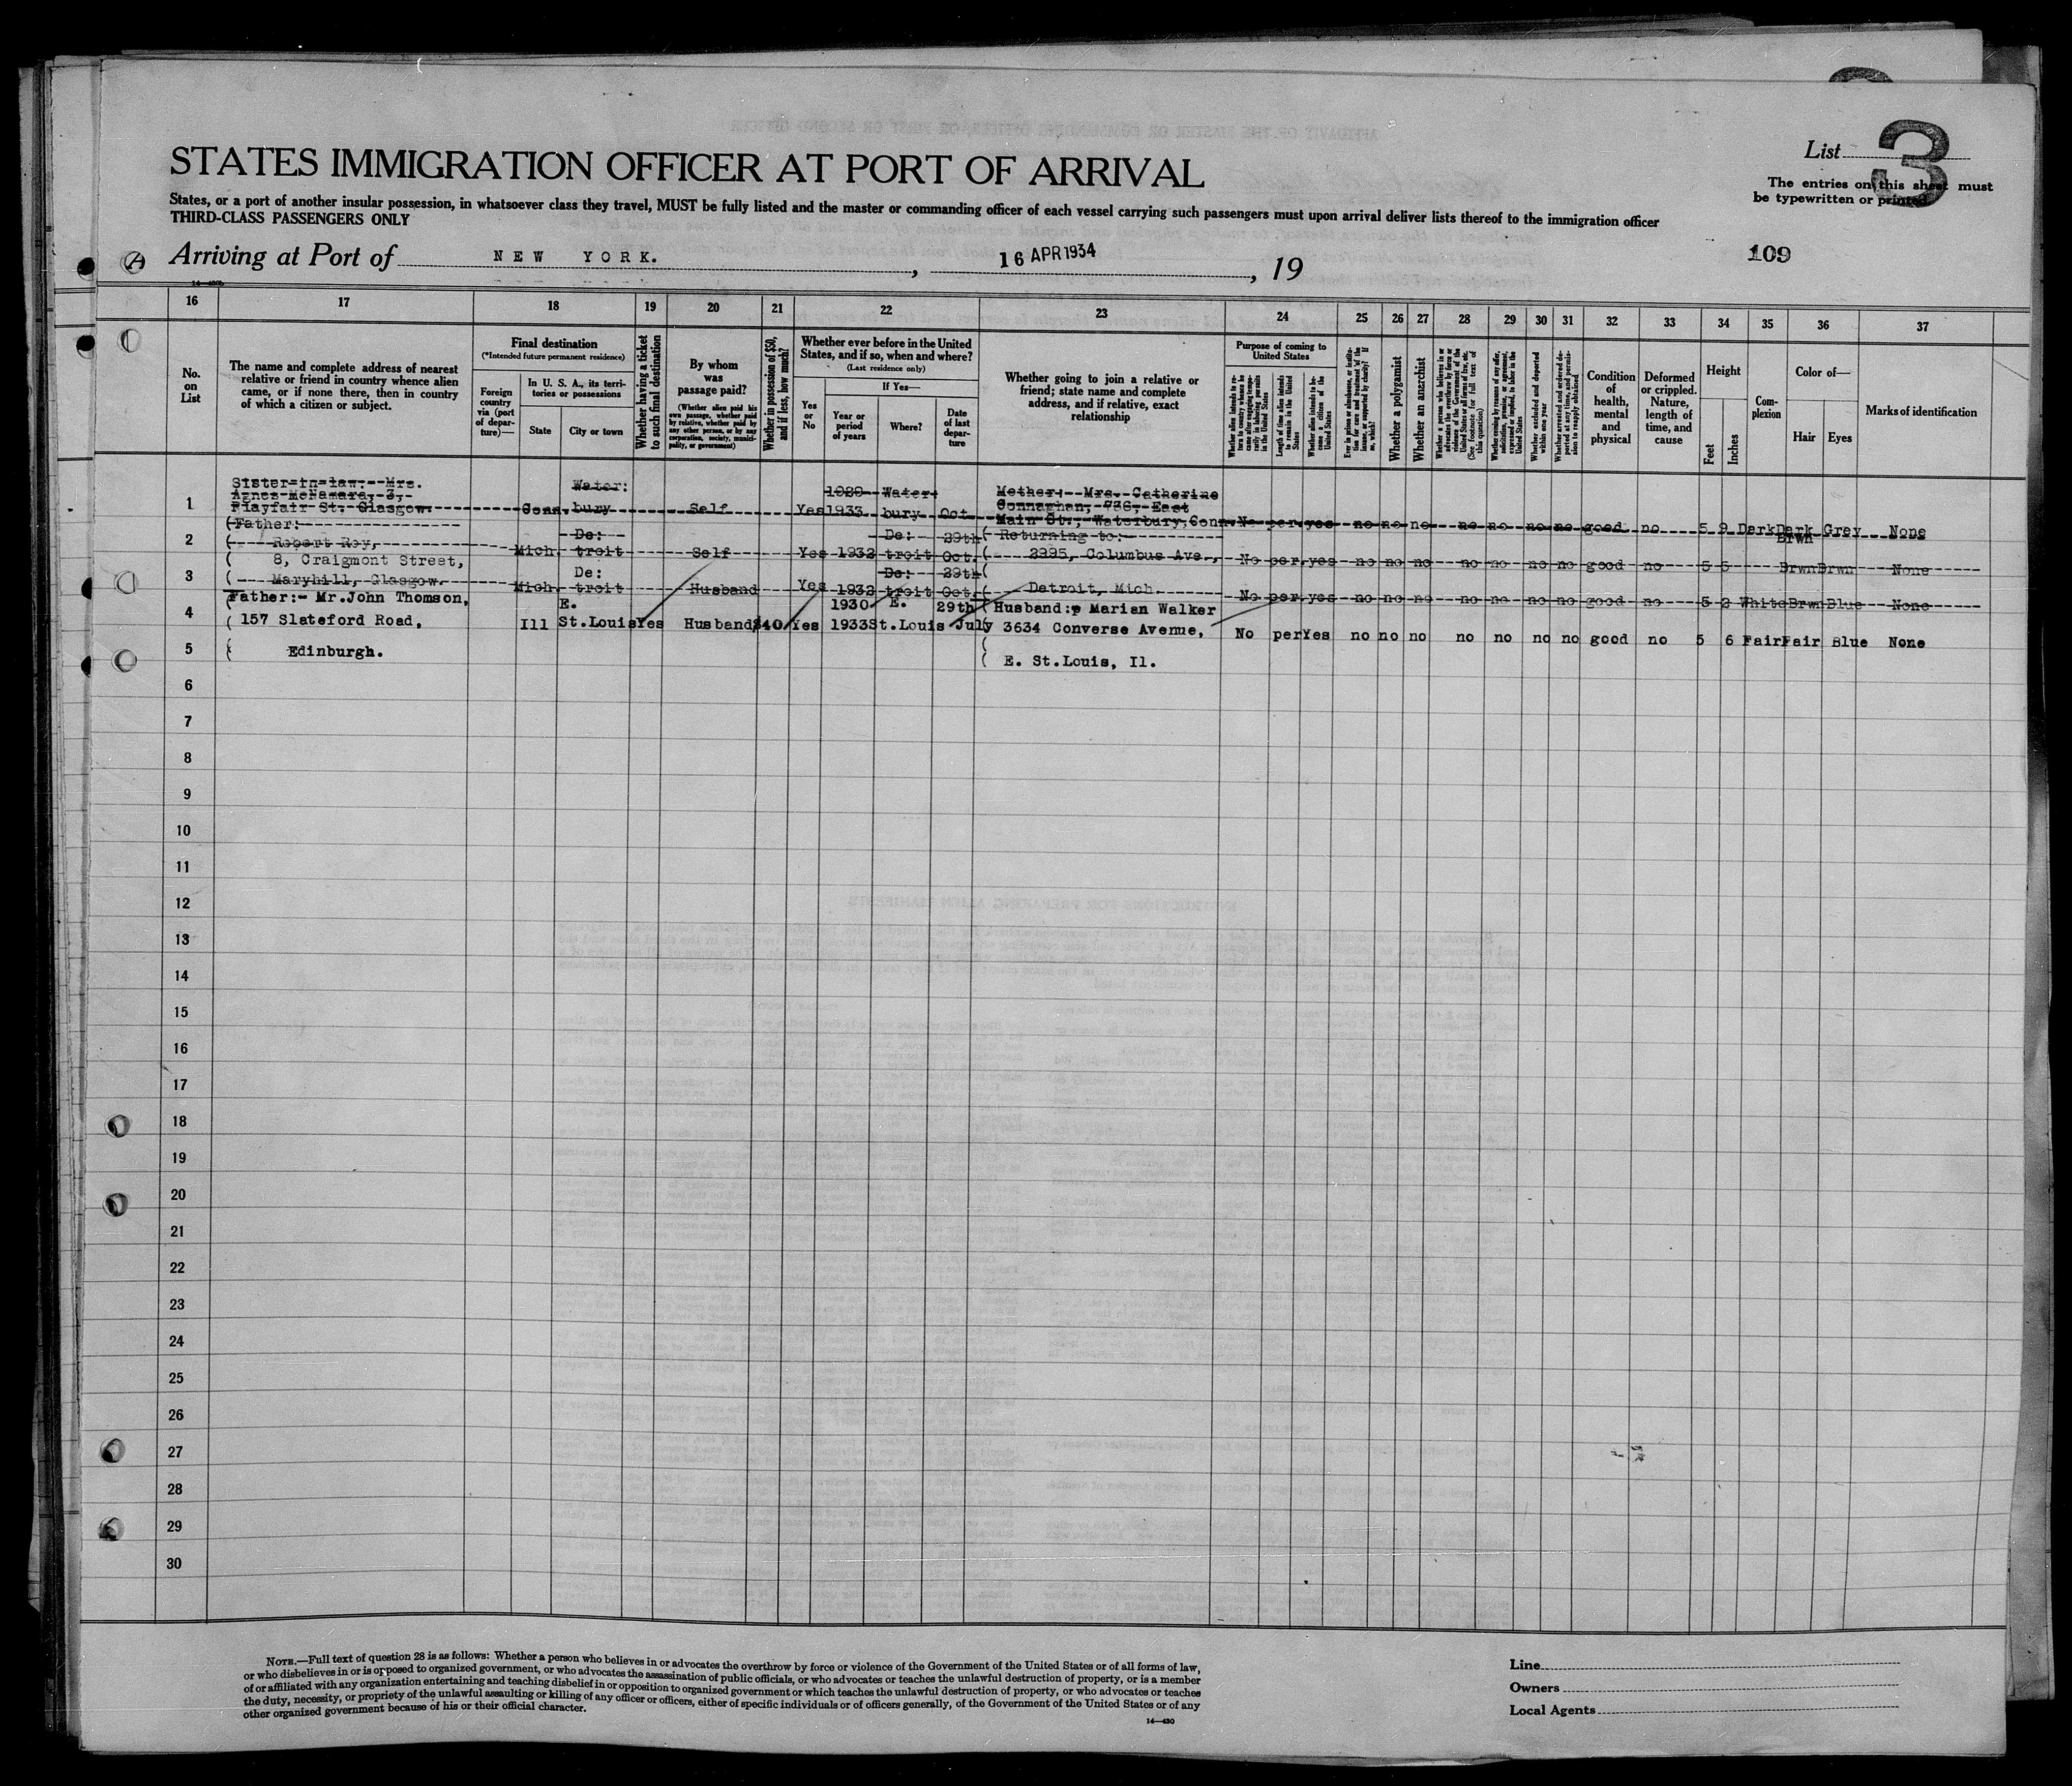 3
List
STATES IMMIGRATION OFFICER AT PORT OF ARRIVAL
The entries on this sheet must
be typewritten or printed
States, or a port of another insular possession, in whatsoever class they travel, MUST be fully listed and the master or commanding officer of each vessel carrying such passengers must upon arrival deliver lists thereof to the immigration officer
THIRD-CLASS PASSENGERS ONLY
Arriving at Port of NEW YORK. , 16 APR 1934 , 19
109
16 17 18 19 20 21 22 23 24 25 26 27 28 29 30 31 32 33 34 35 36 37
No.
on
List
The name and complete address of nearest
relative or friend in country whence alien
came, or if none there, then in country
of which a citizen or subject.
Final destination
(*Intended future permanent residence)
Foreign
country
via (port
of depar-
ture)—
In U. S. A., its terri-
tories or possessions
State
City or town
Whether having a ticket
to such final destination
By whom
was
passage paid?
(Whether alien paid his
own passage, whether paid
by relative, whether paid by
any other person, or by any
corporation, society, munici-
pality, or government)
Whether in possession of $50,
and if less, how much?
Whether ever before in the United
States, and if so, when and where?
(Last residence only)
Yes
or
No
If Yes—
Year or
period
of years
Where?
Date
of last
depar-
ture
Whether going to join a relative or
friend; state name and complete
address, and if relative, exact
relationship
Purpose of coming to
United States
Whether alien intends to re-
turn to country whence he
came after engaging tempo-
rarily in laboring pursuits
in the United States
Length of time alien intends
to remain in the United
States
Whether alien intends to be-
come a citizen of the
United States
Whether a polygamist
Whether an anarchist
Whether excluded and deported
within one year
Condition
of
health,
mental
and
physical
Deformed
or crippled.
Nature,
length of
time, and
cause
Height
Feet
Inches
Com-
plexion
Color of—
Hair
Eyes
Marks of identification
1
Sister-in-law:--Mrs.
Agnes McNamara, 3,
Playfair St. Glasgow.
Conn.
Water:
bury
Self
Yes
1929
1933
Water:
bury
Oct
Mother:--Mrs. Catherine
Connaghan, 736, East
Main St., Waterbury, Conn.
No per yes no no no no no no no good no 5 9 Dark Dark Grey None
2
(Father:
( Robert Roy,
Mich. De: troit Self Yes 1932 De: troit 29th Oct.
(Returning to:
( 2995, Columbus Ave.,
No per yes no no no no no no no good no 5 5 Brwn Brwn Brwn None
3
( 8, Craigmont Street,
( Maryhill, Glasgow.
Mich. De: troit Husband Yes 1932 De: troit 29th Oct.
( Detroit, Mich.
No per yes no no no no no no no good no 5 2 White Brwn Blue None
4
Father:- Mr.John Thomson,
( 157 Slateford Road,
Ill E. St.Louis Yes Husband $40 Yes 1930 1933 E. St.Louis 29th July
Husband: Marian Walker
( 3634 Converse Avenue,
No per Yes no no no no no no no good no 5 6 Fair Fair Blue None
5
( Edinburgh.
( E. St.Louis, Il.
6
7
8
9
10
11
12
13
14
15
16
17
18
19
20
21
22
23
24
25
26
27
28
29
30
NOTE.—Full text of question 28 is as follows: Whether a person who believes in or advocates the overthrow by force or violence of the Government of the United States or of all forms of law,
or who disbelieves in or is opposed to organized government, or who advocates the assassination of public officials, or who advocates or teaches the unlawful destruction of property, or is a member
of or affiliated with any organization entertaining and teaching disbelief in or opposition to organized government or which teaches the unlawful destruction of property, or who advocates or teaches
the duty, necessity, or propriety of the unlawful assaulting or killing of any officer or officers, either of specific individuals or of officers generally, of the Government of the United States or of any
other organized government because of his or their official character.
14—430
Line
Owners
Local Agents